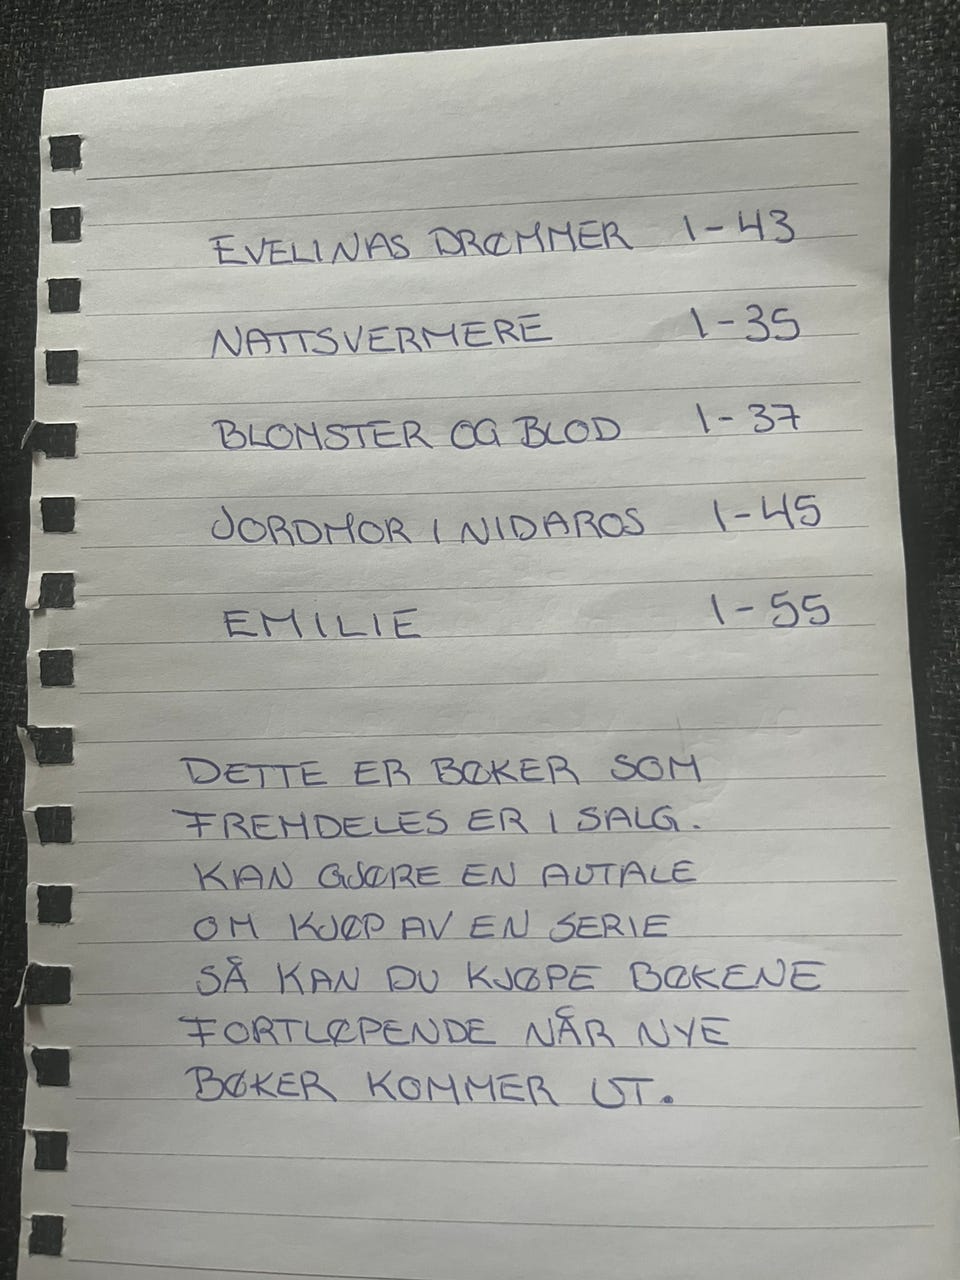 EVELINAS DRØMMER 1-43
NATTSVERMERE 1-35
BLOMSTER OG BLOD 1-37
JORDMOR I NIDAROS 1-45
EMILIE 1-55
DETTE ER BØKER SOM
FREMDELES ER I SALG.
KAN GJØRE EN AVTALE
OM KJØP AV EN SERIE
SÅ KAN DU KJØPE BØKENE
FORTLØPENDE NÅR NYE
BØKER KOMMER UT.